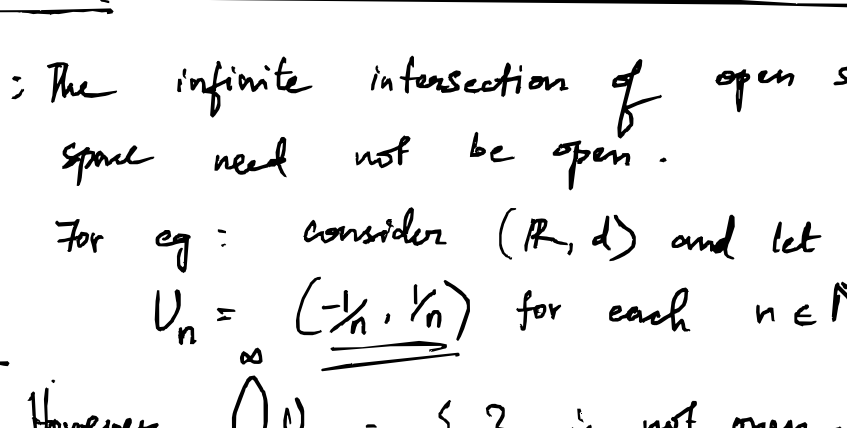 : The infinite intersection of open
space need not be open.
For eg : consider (ℝ, d) and let
Uₙ = (-1/n, 1/n) for each n ∈